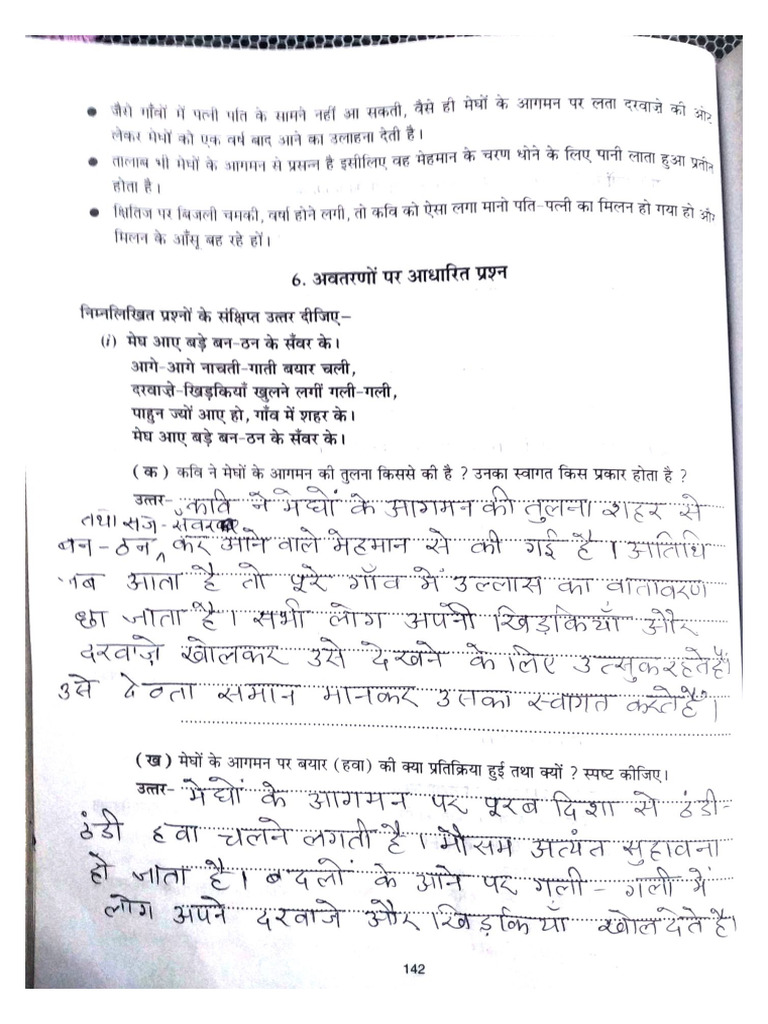 • जैसे गाँवों में पत्नी पति के सामने नहीं आ सकती, वैसे ही मेघों के आगमन पर लता दरवाज़े की ओर
लेकर मेघों को एक वर्ष बाद आने का उलाहना देती है।
• तालाब भी मेघों के आगमन से प्रसन्न है इसीलिए वह मेहमान के चरण धोने के लिए पानी लाता हुआ प्रतीत
होता है।
• क्षितिज पर बिजली चमकी, वर्षा होने लगी, तो कवि को ऐसा लगा मानो पति-पत्नी का मिलन हो गया हो और
मिलन के आँसू बह रहे हों।
6. अवतरणों पर आधारित प्रश्न
निम्नलिखित प्रश्नों के संक्षिप्त उत्तर दीजिए–
(i) मेघ आए बड़े बन-ठन के सँवर के।
आगे-आगे नाचती-गाती बयार चली,
दरवाज़े-खिड़कियाँ खुलने लगीं गली-गली,
पाहुन ज्यों आए हो, गाँव में शहर के।
मेघ आए बड़े बन-ठन के सँवर के।
(क) कवि ने मेघों के आगमन की तुलना किससे की है ? उनका स्वागत किस प्रकार होता है ?
उत्तर- कवि ने मेघों के आगमन की तुलना शहर से
तथा सज-सँवर
बन-ठन कर आने वाले मेहमान से की गई है। अतिथि
जब आता है तो पूरे गाँव में उल्लास का वातावरण
छा जाता है। सभी लोग अपनी खिड़कियाँ और
दरवाज़े खोलकर उसे देखने के लिए उत्सुक रहते हैं।
उसे देवता समान मानकर उसका स्वागत करते हैं।
(ख) मेघों के आगमन पर बयार (हवा) की क्या प्रतिक्रिया हुई तथा क्यों ? स्पष्ट कीजिए।
उत्तर- मेघों के आगमन पर पूरब दिशा से ठंडी-
ठंडी हवा चलने लगती है। मौसम अत्यंत सुहावना
हो जाता है। बदलों के आने पर गली-गली में
लोग अपने दरवाजे और खिड़कियाँ खोल देते है।
142